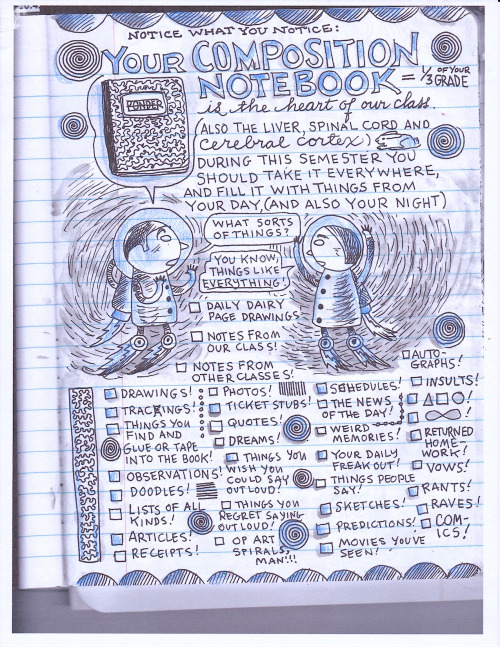 NOTICE WHAT YOU NOTICE:
YOUR COMPOSITION
NOTEBOOK = 1/3 OF YOUR GRADE
is the heart of our class.
(ALSO THE LIVER, SPINAL CORD AND
cerebral cortex)
DURING THIS SEMESTER YOU
SHOULD TAKE IT EVERYWHERE,
AND FILL IT WITH THINGS FROM
YOUR DAY, (AND ALSO YOUR NIGHT)
PONDER
WHAT SORTS
OF THINGS?
YOU KNOW,
THINGS LIKE
EVERYTHING!
DAILY DAIRY
PAGE DRAWINGS
NOTES FROM
OUR CLASS!
NOTES FROM
OTHER CLASSES!
DRAWINGS!
TRACINGS!
THINGS YOU
FIND AND
GLUE OR TAPE
INTO THE BOOK!
OBSERVATIONS!
DOODLES!
LISTS OF ALL
KINDS!
ARTICLES!
RECEIPTS!
PHOTOS!
TICKET STUBS!
QUOTES!
DREAMS!
THINGS YOU
WISH YOU
COULD SAY
OUT LOUD!
THINGS YOU
REGRET SAYING
OUT LOUD!
OP ART
SPIRALS,
MAN!!!
SCHEDULES!
THE NEWS
OF THE DAY!
WEIRD
MEMORIES!
YOUR DAILY
FREAK OUT!
THINGS PEOPLE
SAY!
SKETCHES!
PREDICTIONS!
MOVIES YOU'VE
SEEN!
AUTO-
GRAPHS!
INSULTS!
RETURNED
HOME-
WORK!
VOWS!
RANTS!
RAVES!
COM-
ICS!